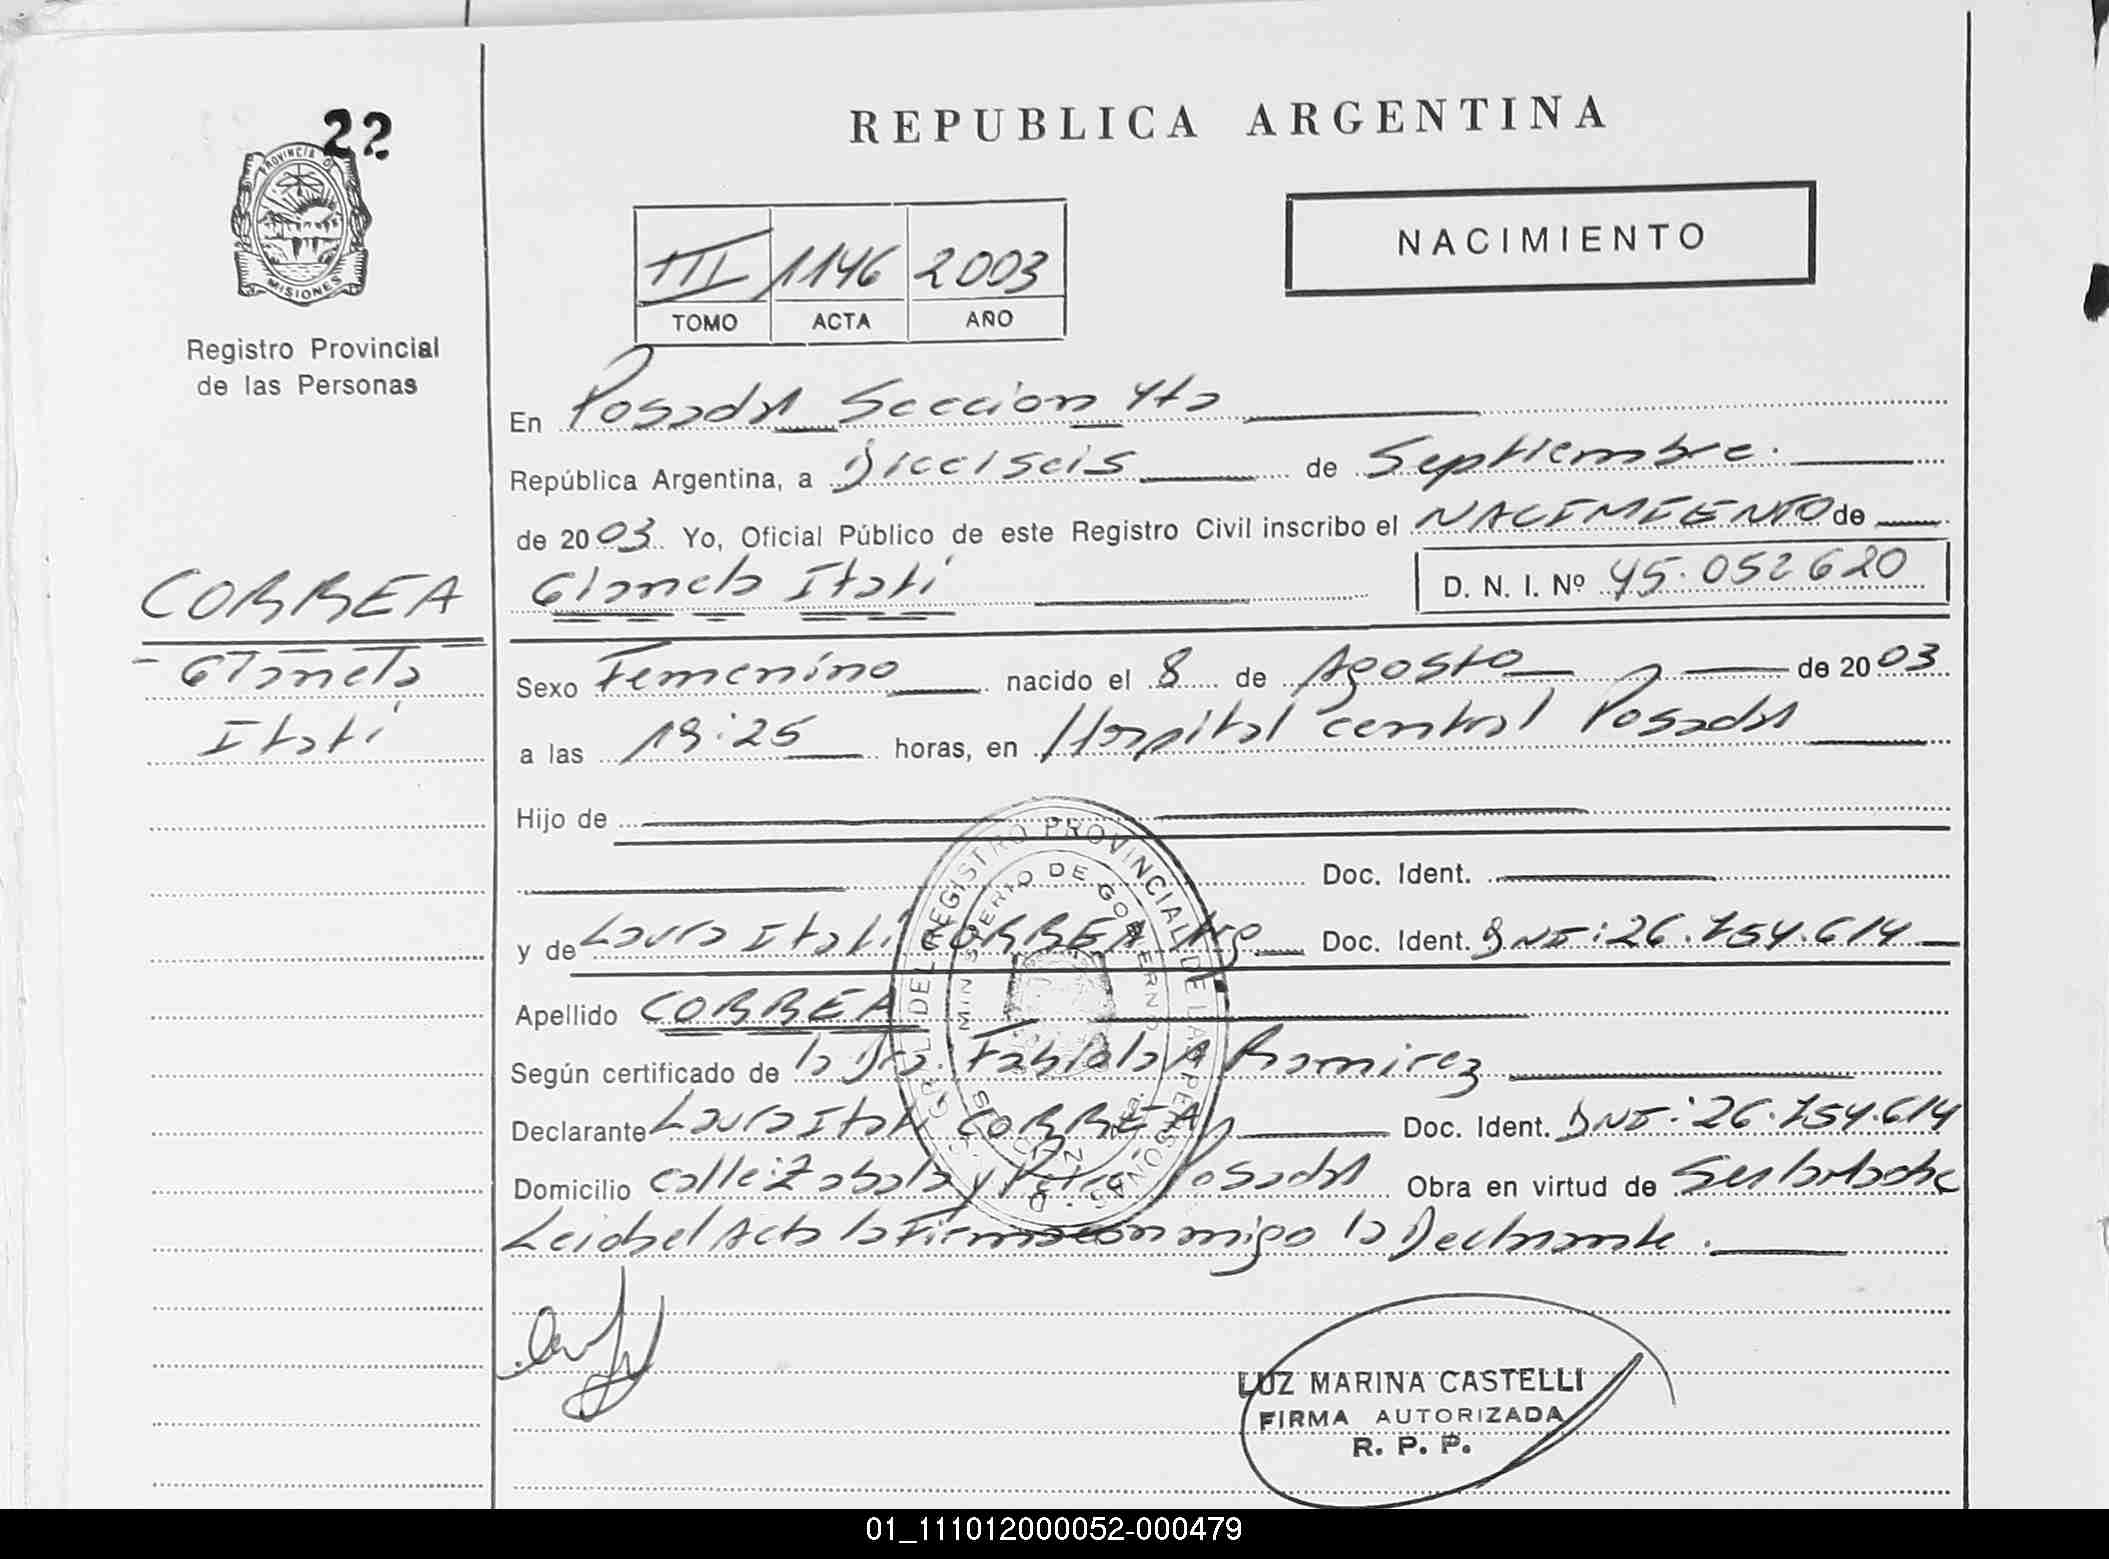 22
PROVINCIA DE
MISIONES
Registro Provincial
de las Personas
REPUBLICA ARGENTINA
NACIMIENTO
III 1146 2003
TOMO ACTA AÑO
En Posadas Seccion 4ta
República Argentina, a Dieciseis de Septiembre.
de 2003. Yo, Oficial Público de este Registro Civil inscribo el NACIMIENTO de
Gianela Itatí D. N. I. Nº 45.052620
CORREA
Gianela
Itatí
Sexo Femenino nacido el 8 de Agosto de 2003
a las 19:25 horas, en Hospital central Posadas
Hijo de
Doc. Ident.
y de Laura Itatí CORREA Arg Doc. Ident. DNI: 26.754.614
Apellido CORREA
Según certificado de la Dra. Fabiola A Ramirez
Declarante Laura Itati CORREA Doc. Ident. DNI: 26.754.614
Domicilio calle: Zabala y Posadas Obra en virtud de
Leida el Acta la Firma conmigo la Declarante.
REGISTRO PROVINCIAL DE LAS PERSONAS
MINISTERIO DE GOBIERNO
LUZ MARINA CASTELLI
FIRMA AUTORIZADA
R. P. P.
01_111012000052-000479